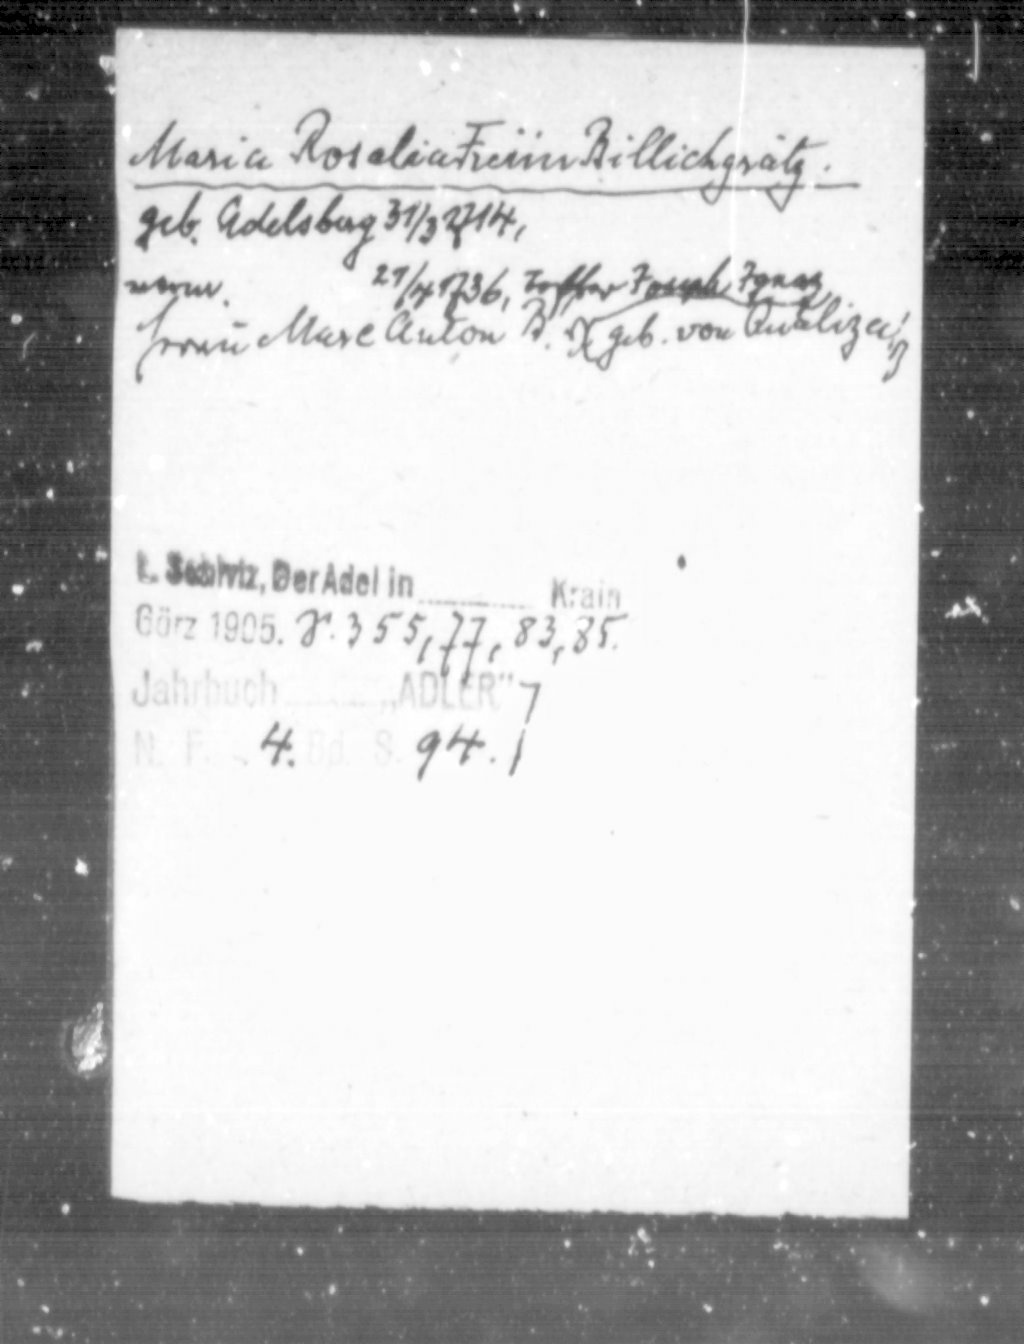 Maria Rosalia Freiin Billichgrätz.
geb. Adelsberg 31/3 1714,
verm. 21/4 1736, Joseph Ignaz
Marc Anton B. geb. von
L. Schiviz, Der Adel in ........ Krain
Görz 1905. S. 355, 77, 83, 85.
Jahrbuch ........ „ADLER"
N. F. 4. Bd. S. 94.